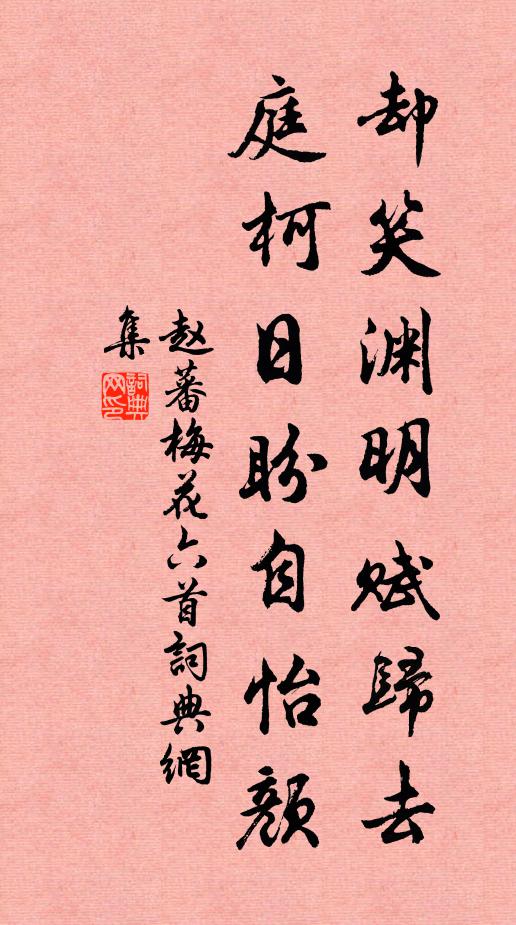 却笑渊明赋歸去
庭柯日盼自怡颜
赵蕃梅花六首詞典網
集
詞典
网印